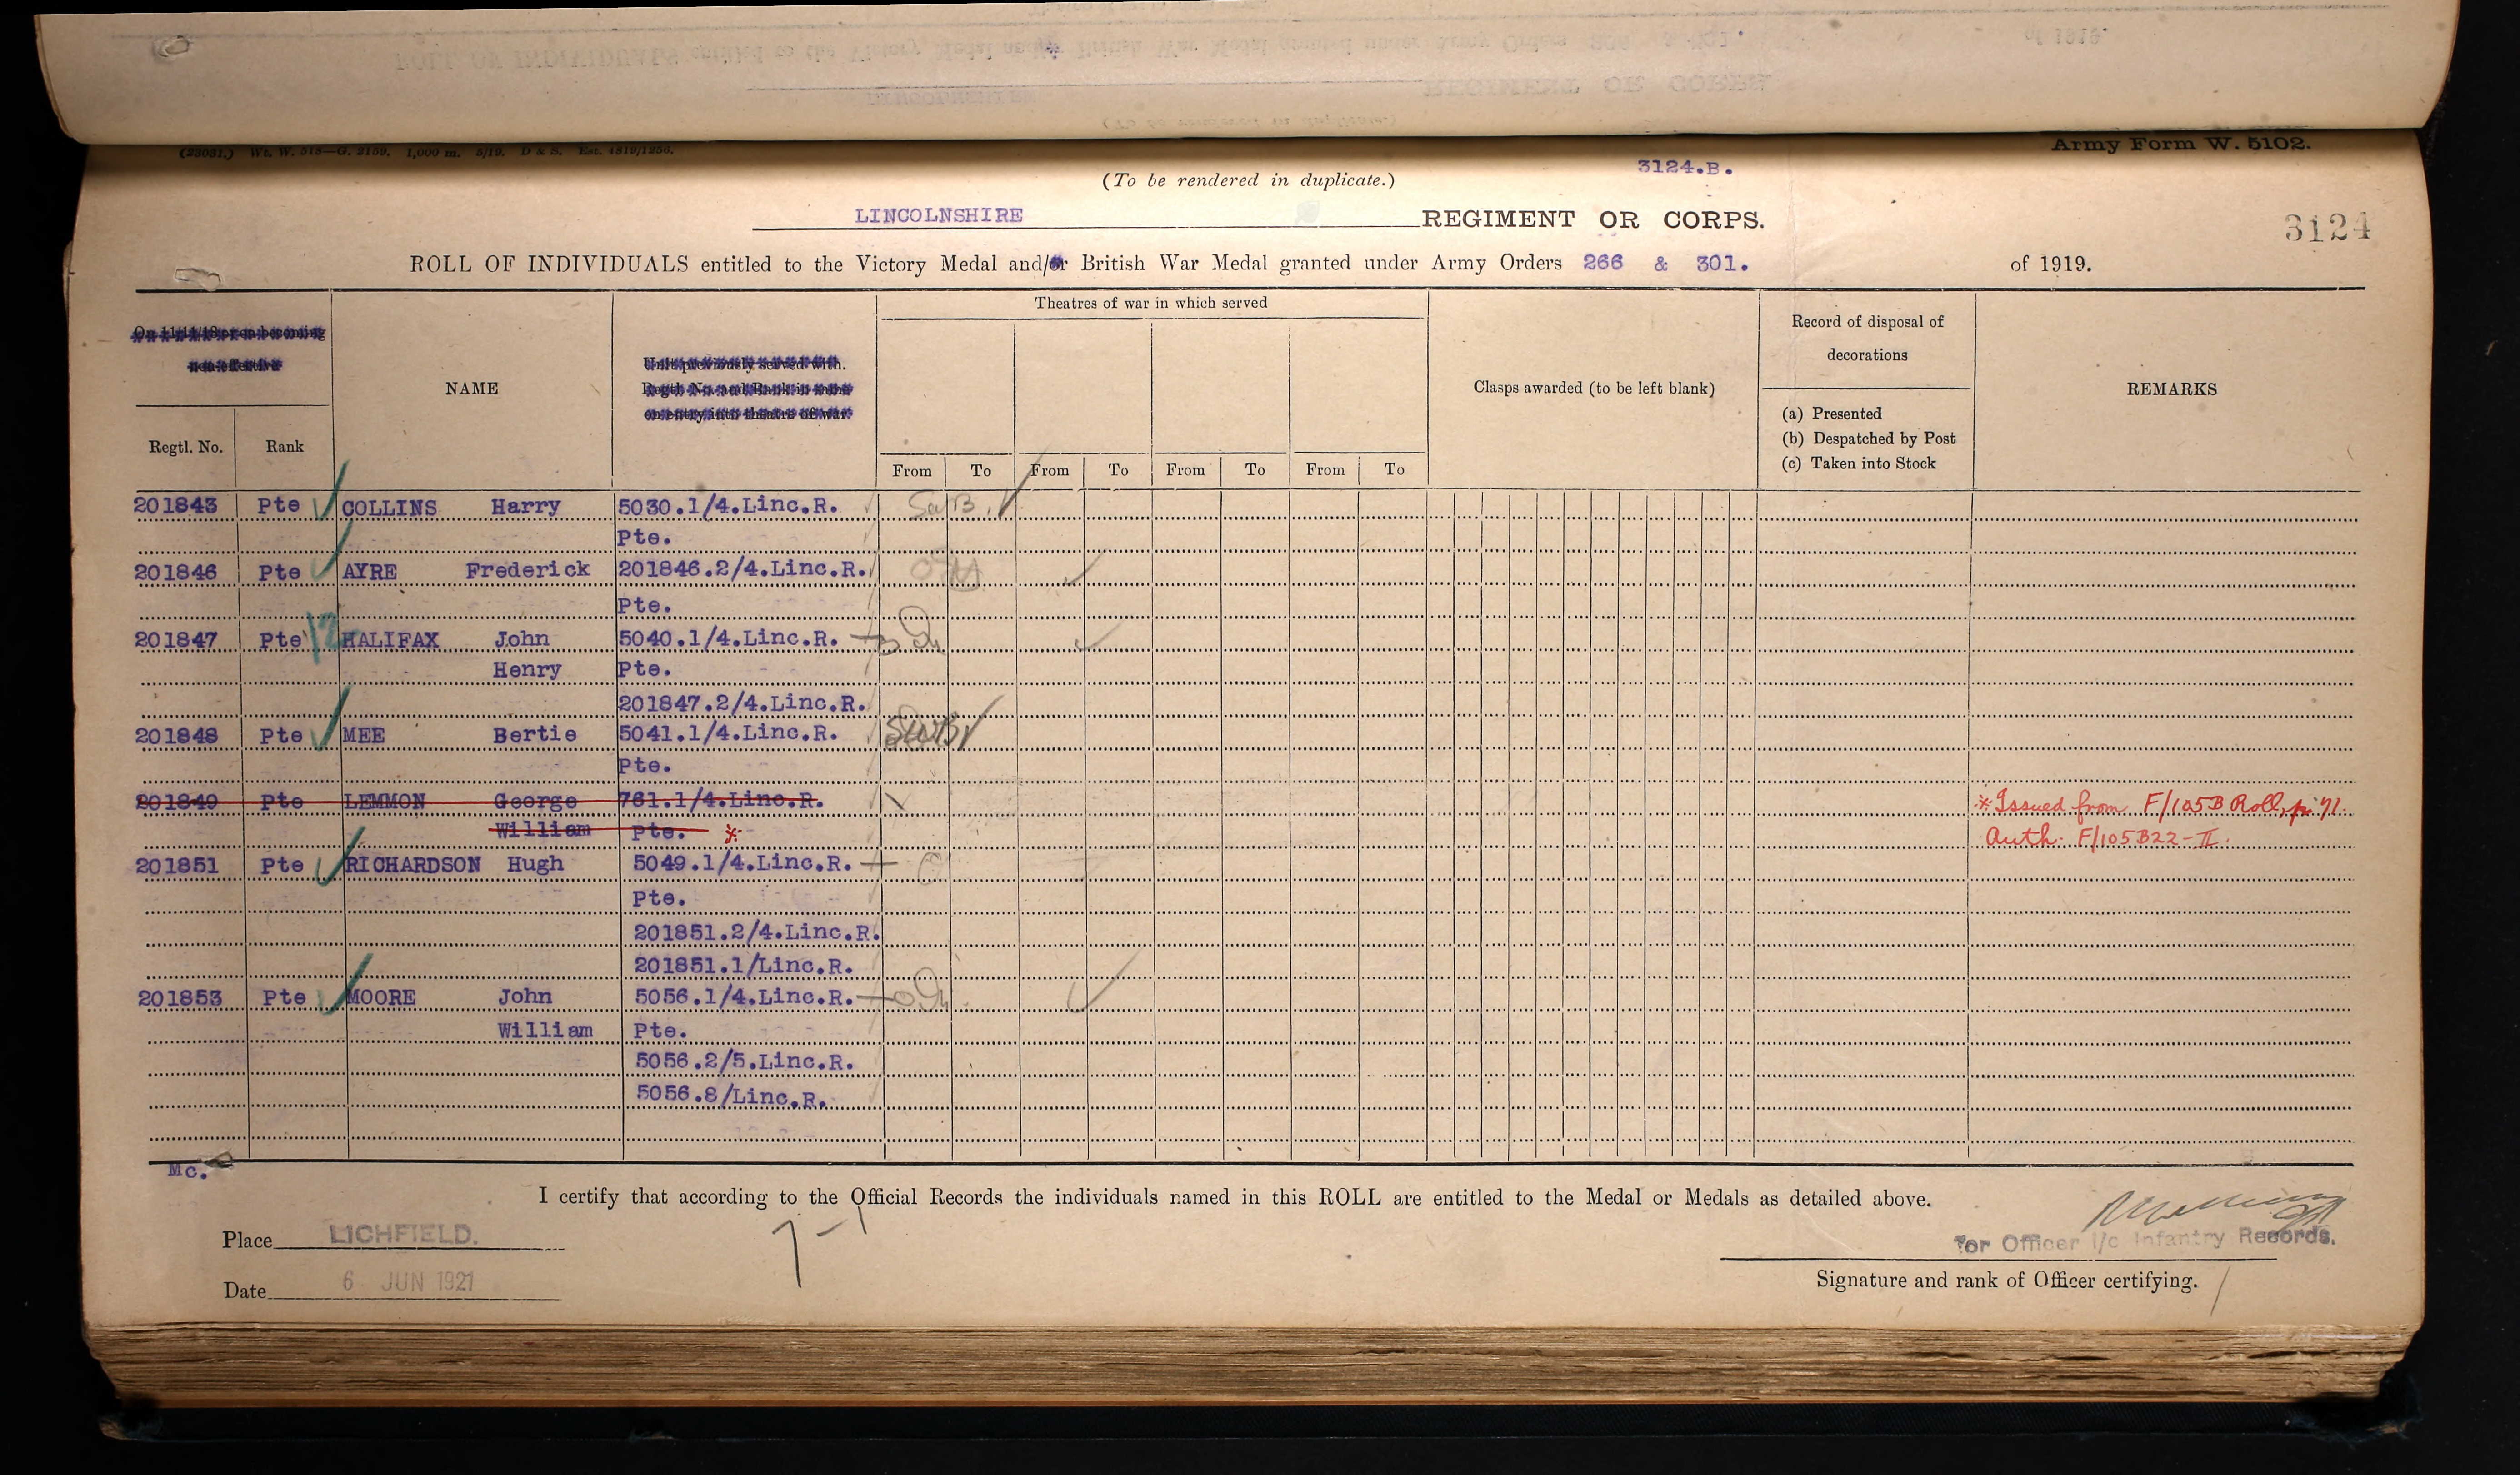 (23031.) Wt. W. 518—G. 2169. 1,000 m. 5/19. D & S. Est. 4819/1256.
Army Form W. 5102.
3124.B.
(To be rendered in duplicate.)
LINCOLNSHIRE REGIMENT OR CORPS.
3124
ROLL OF INDIVIDUALS entitled to the Victory Medal and/or British War Medal granted under Army Orders 266 & 301. of 1919.
On 11/11/18 or on becoming
non-effective
Regtl. No.
Rank
NAME
Unit previously served with.
Regtl. No. and Rank in same
on entry into theatre of war.
Theatres of war in which served
From To From To From To From To
Clasps awarded (to be left blank)
Record of disposal of
decorations
(a) Presented
(b) Despatched by Post
(c) Taken into Stock
REMARKS
201843 Pte COLLINS Harry 5030.1/4.Linc.R.
Pte.
201846 Pte AYRE Frederick 201846.2/4.Linc.R.
Pte.
201847 Pte HALIFAX John 5040.1/4.Linc.R.
Henry Pte.
201847.2/4.Linc.R.
201848 Pte MEE Bertie 5041.1/4.Linc.R. SWB
Pte.
201849 Pte LEMMON George 761.1/4.Linc.R. * Issued from F/105B Roll, p. 71.
William Pte. * Auth. F/105B22-II.
201851 Pte RICHARDSON Hugh 5049.1/4.Linc.R.
Pte.
201851.2/4.Linc.R.
201851.1/Linc.R.
201853 Pte MOORE John 5056.1/4.Linc.R.
William Pte.
5056.2/5.Linc.R.
5056.8/Linc.R.
Mc.
I certify that according to the Official Records the individuals named in this ROLL are entitled to the Medal or Medals as detailed above.
7-1
Place LICHFIELD.
for Officer i/c Infantry Records.
Date 6 JUN 1921
Signature and rank of Officer certifying.